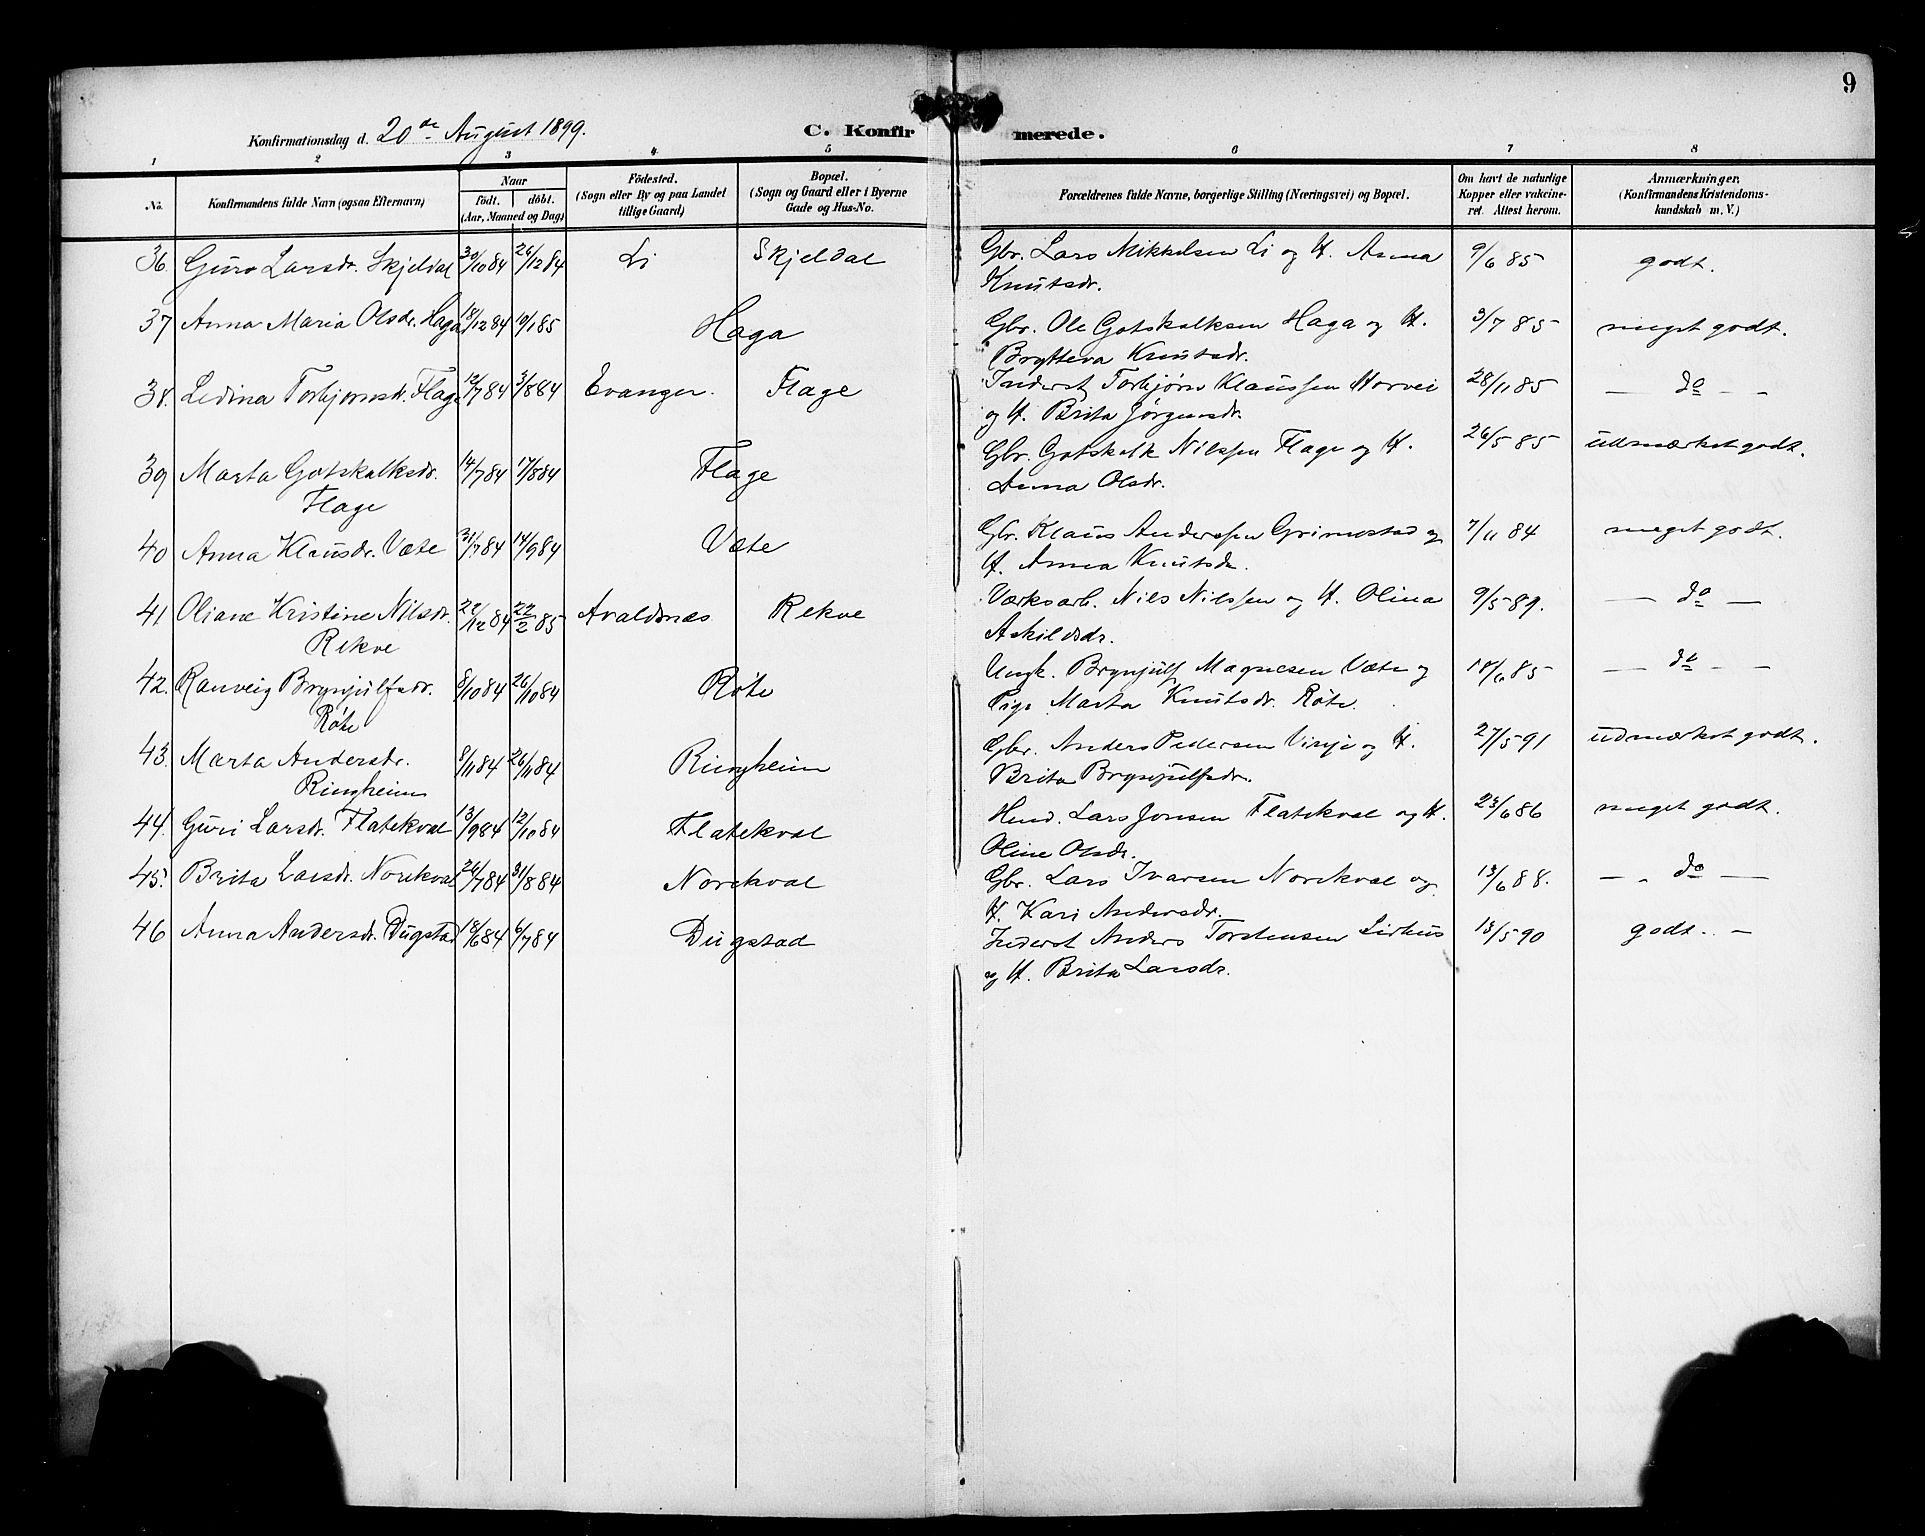 9
Konfirmationsdag d. 20de August 1899. C. Konfirmerede.
1 2 3 4 5 6 7 8
No. Konfirmandens fulde Navn (ogsaa Efternavn) Naar født. døbt. (Aar, Maaned og Dag) Födested. (Sogn eller By og paa Landet tillige Gaard) Bopæl. (Sogn og Gaard eller i Byerne Gade og Hus-No. Forældrenes fulde Navne, borgerlige Stilling (Næringsvei) og Bopæl. Om havt de naturlige Kopper eller vakcineret. Attest herom. Anmærkninger, (Konfirmandens Kristendomskundskab m. V.)
36. Guro Larsdr. Skjeldal 30/10 84 26/12 84 Li Skjeldal Gbr. Lars Mikkelsen Li og H. Anna 9/6 85 godt.
Knutsdr.
37 Anna Maria Olsdr. Haga 18/12 84 10/1 85 Haga Gbr. Ole Gotskalksen Haga og H. 3/7 85 meget godt.
Brytteva Knutsdr.
38. Ledina Torbjornsdr. Flage 12/7 84 3/8 84 Evanger. Flage Inderst Torbjørn Klaussen Horvei 28/11 85 — do — -
og H. Brita Jörgensdr.
39 Marta Gotskalksdr. 14/7 84 17/8 84 Flage Gbr. Gotskalk Nilssen Flage og H. 26/5 85 udmærket godt.
Flage Anna Olsdr.
40 Anna Klausdr. Væte 31/7 84 14/9 84 Væte Gbr. Klaus Anderssen Grimestad og 7/11 84 meget godt.
H. Anna Knutsdr.
41 Oliane Kristine Nilsdr. 22/12 84 22/2 85 Avaldsnæs Rekve Værksarb. Nils Nilssen og H. Olina 9/5 89. — do —
Rekve Askildsdr.
42. Ranveig Brynjulfsdr. 8/10 84 26/10 84 Røte Ungk. Brynjulf Magnesen Væte og 18/6 85 — do - —
Røte Pige Marta Knutsdr. Røte.
43. Marta Andersdr. 8/11 84 26/11 84 Ringheim Gbr. Anders Pedersen Vinje og H. 27/5 91 udmærket godt.
Ringheim Brita Brynjulfsdr.
44. Guri Larsdr. Flatekval 13/9 84 12/10 84 Flatekval Husd. Lars Jonsen Flatekval og H. 23/6 86 meget godt.
Oline Olsdr.
45. Brita Larsdr. Norekval 26/7 84 31/8 84 Norekval Gbr. Lars Ivarsen Norekval og 13/6 88. — do —
H. Kari Andersdr.
46 Anna Andersdr. Dugstad 18/6 84 6/7 84 Dugstad Inderst Anders Torstensen Lirhus 13/5 90 godt. —
og H. Brita Larsdr.